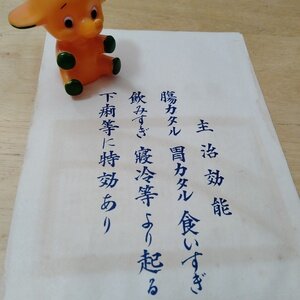 主治効能
腸カタル 胃カタル 食いすぎ
飲みすぎ 寝冷等より起る
下痢等に特効あり